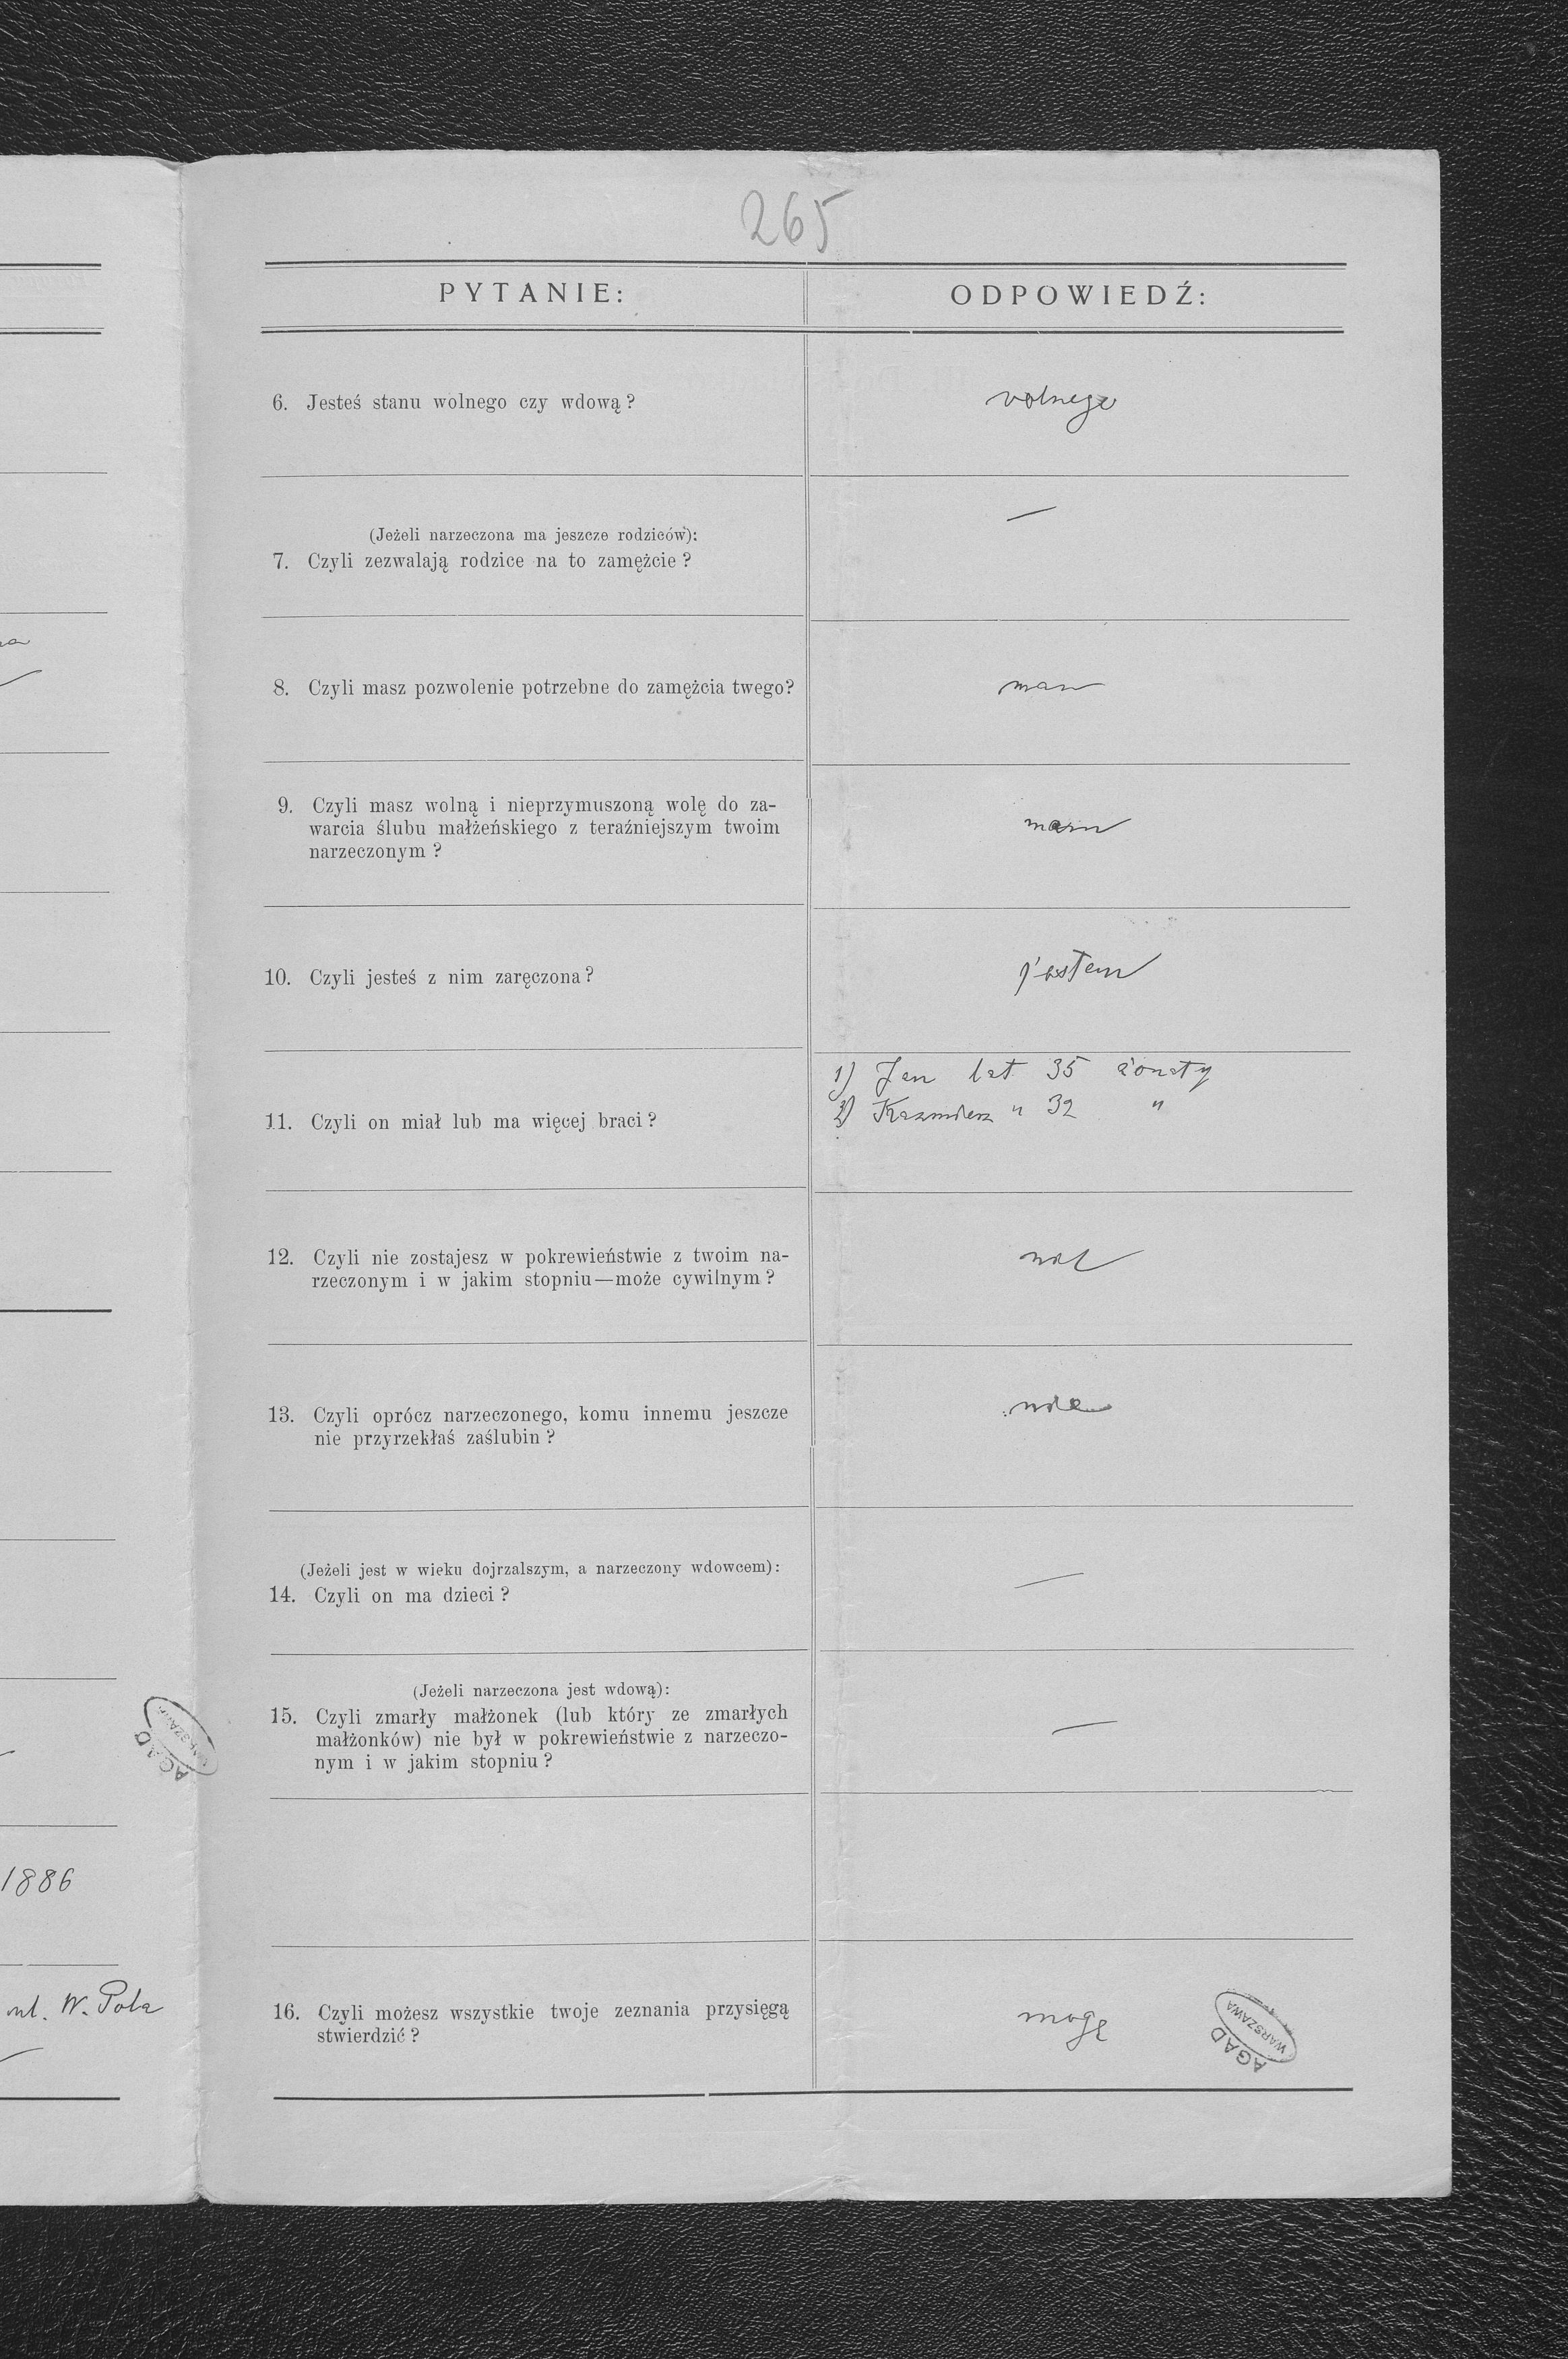 265
PYTANIE:
ODPOWIEDŹ:
6. Jesteś stanu wolnego czy wdową?
wolnego
(Jeżeli narzeczona ma jeszcze rodziców):
7. Czyli zezwalają rodzice na to zamęźcie?
—
8. Czyli masz pozwolenie potrzebne do zamęźcia twego?
mam
9. Czyli masz wolną i nieprzymuszoną wolę do za-
warcia ślubu małżeńskiego z teraźniejszym twoim
narzeczonym?
mam
10. Czyli jesteś z nim zaręczona?
jestem
11. Czyli on miał lub ma więcej braci?
1) Jan lat 35 żonaty
2) Kazimierz " 32 "
12. Czyli nie zostajesz w pokrewieństwie z twoim na-
rzeczonym i w jakim stopniu—może cywilnym?
nie
13. Czyli oprócz narzeczonego, komu innemu jeszcze
nie przyrzekłaś zaślubin?
nie
(Jeżeli jest w wieku dojrzalszym, a narzeczony wdowcem):
14. Czyli on ma dzieci?
—
(Jeżeli narzeczona jest wdową):
15. Czyli zmarły małżonek (lub który ze zmarłych
małżonków) nie był w pokrewieństwie z narzeczo-
nym i w jakim stopniu?
—
16. Czyli możesz wszystkie twoje zeznania przysięgą
stwierdzić?
mogę
AGAD
WARSZAWA
AGAD
WARSZAWA
1886
ul. W. Pola